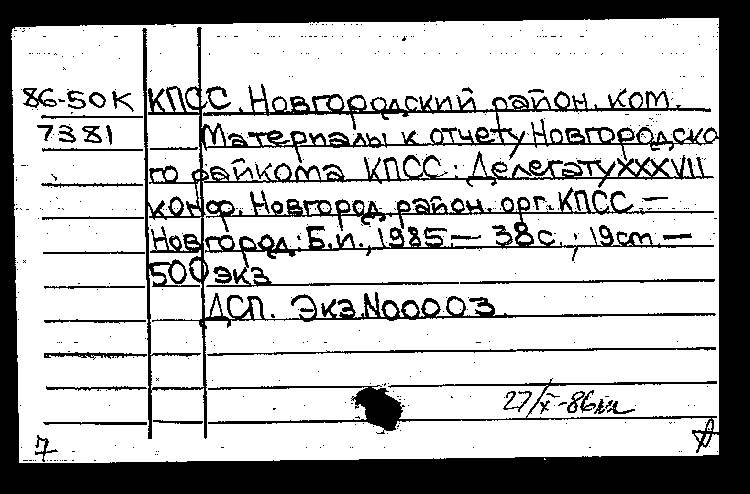 86-50К КПСС. Новгородский район. ком.
7381 Материалы к отчету Новгородско
го райкома КПСС: Делегату XXXVII
конф. Новгород. район. орг. КПСС. —
Новгород: Б.и., 1985 — 38 с. ; 19 cm. —
500 экз
ДСП. Экз. N00003.
27/X-86
7